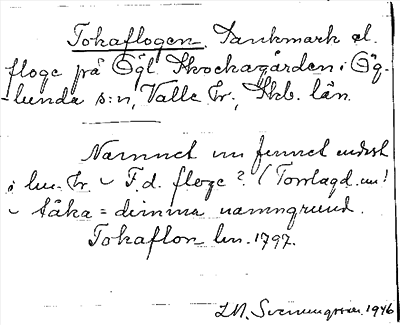 Tokaflogen. Sankmark el.
floge på Ögl. Skockagården i Ög-
lunda s:n, Valle hr., Skb. län.
Namnet nu finnet endast
i lm. hr. – F.d. floge? (Torrlagd nu!
– tåka = dimma namngrund.
Tokaflon lm. 1797.
L.M. Svenungsson 1946